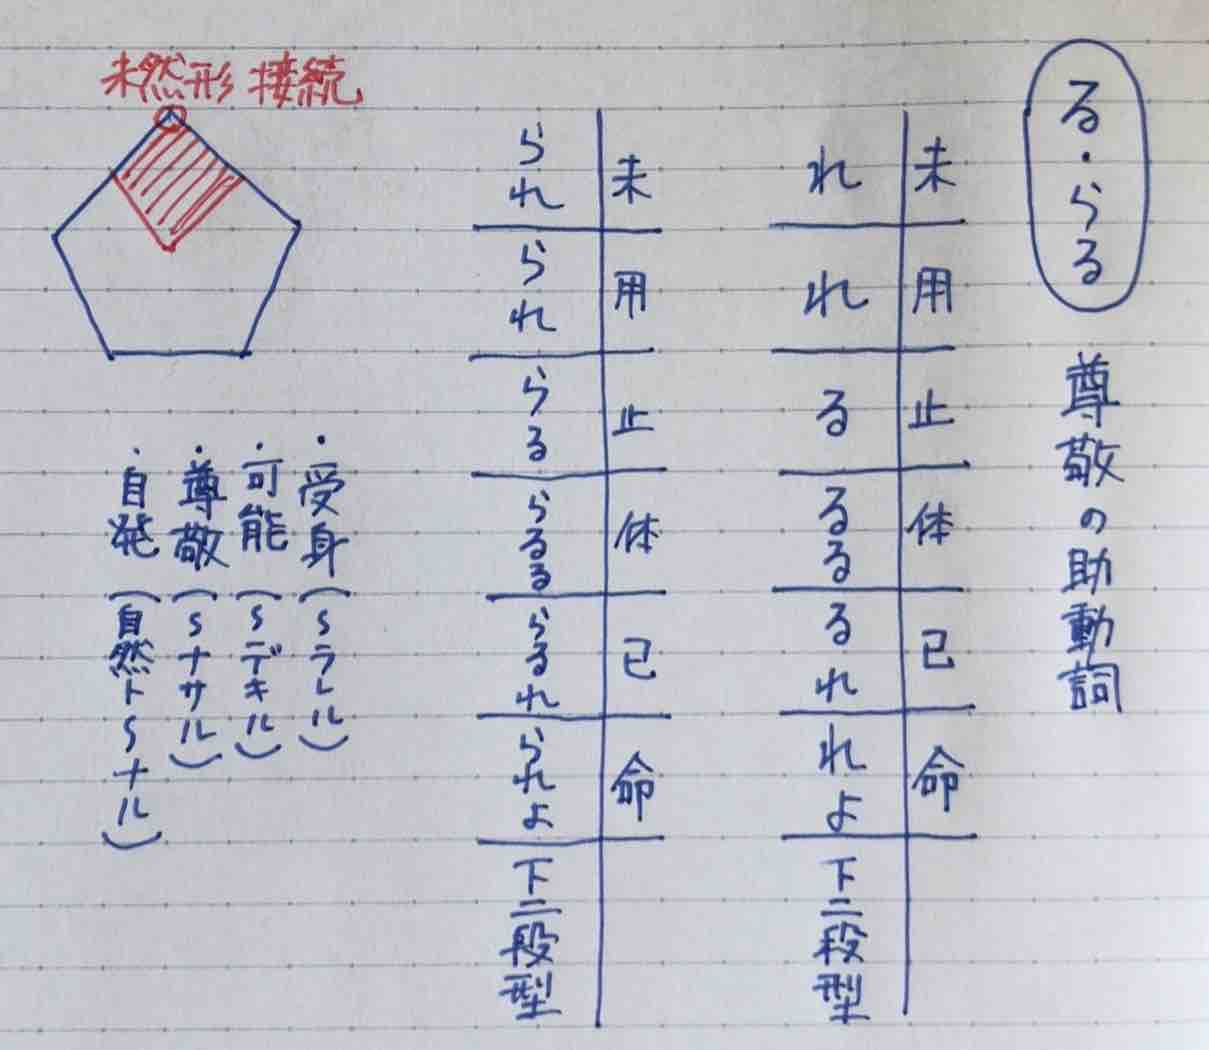 る・らる 尊敬の助動詞
未 用 止 体 已 命
れ れ る るる るれ れよ 下二段型
未 用 止 体 已 命
られ られ らる らるる らるれ られよ 下二段型
未然形接続
・受身(〜ラレル)
・可能(〜デキル)
・尊敬(〜ナサル)
・自発(自然ト〜ナル)